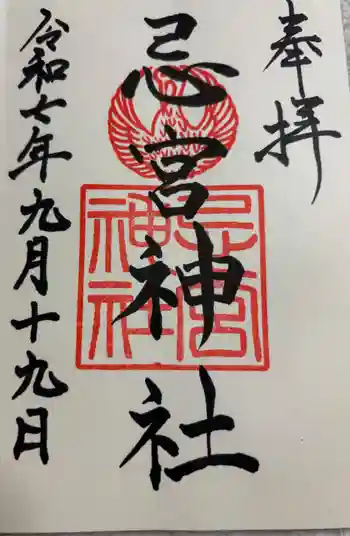 奉拝
忌宮神社
忌宮神社
令和七年九月十九日